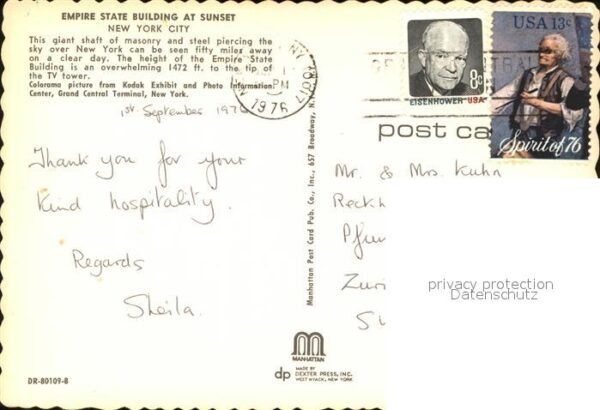 EMPIRE STATE BUILDING AT SUNSET
NEW YORK CITY
This giant shaft of masonry and steel piercing the
sky over New York can be seen fifty miles away
on a clear day. The height of the Empire State
Building is an overwhelming 1472 ft. to the tip of
the TV tower.
Colorama picture from Kodak Exhibit and Photo Information
Center, Grand Central Terminal, New York.
1st. September 1976
Thank you for your
kind hospitality.
Regards
Sheila.
DR-80109-B
Manhattan Post Card Pub. Co., Inc., 657 Broadway, N.Y.
MANHATTAN
dp
MADE BY
DEXTER PRESS, INC.
WEST NYACK, NEW YORK
NY 10017
PM
1976
8c
EISENHOWER USA
USA 13c
Spirit of 76
post ca
Mr. & Mrs. Kuhn
Reckh
Pfun
Zuri
privacy protection
Datenschutz